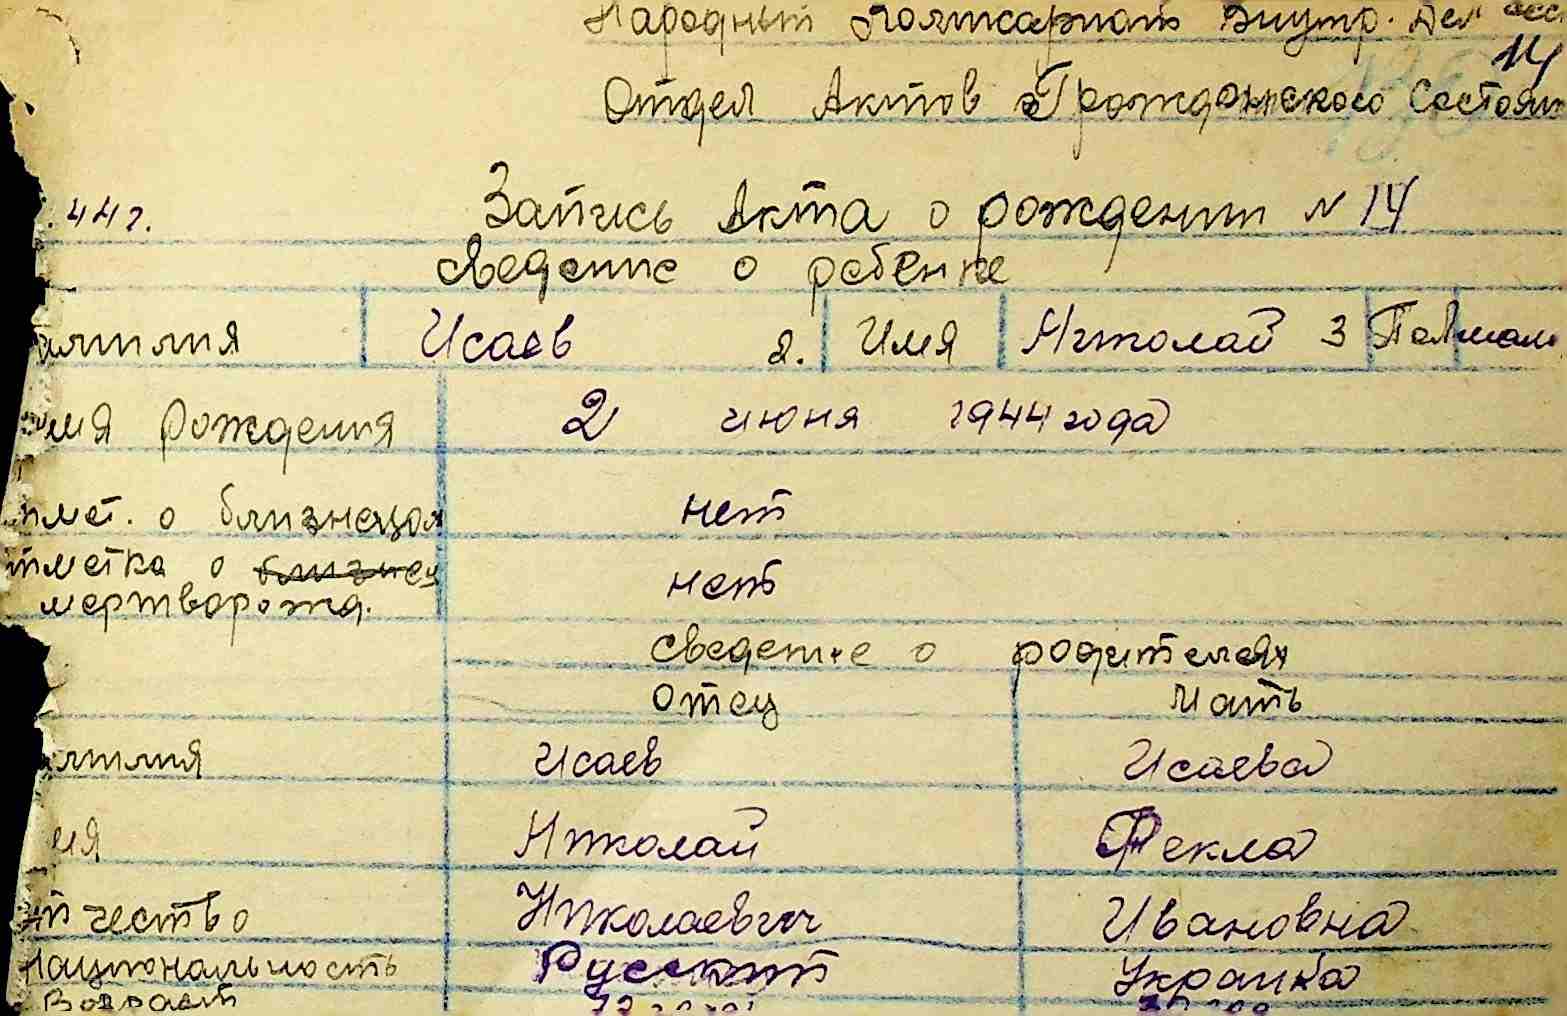 Народный Комиссариат Внутр. Дел
14
Отдел Актов Гражданского Состоян
44 г. Запись Акта о рождении N 14
Сведение о ребенке
амилия Исаев 2. Имя Николай 3 Пол
мя рождения 2 июня 1944 года
тмет. о близнецах нет
тметка о близнец
мертворожд. нет
Сведение о родителях
Отец Мать
амилия Исаев Исаева
мя Николай Фекла
тчество Николаевич Ивановна
Национальность Русский Украинка
Возраст